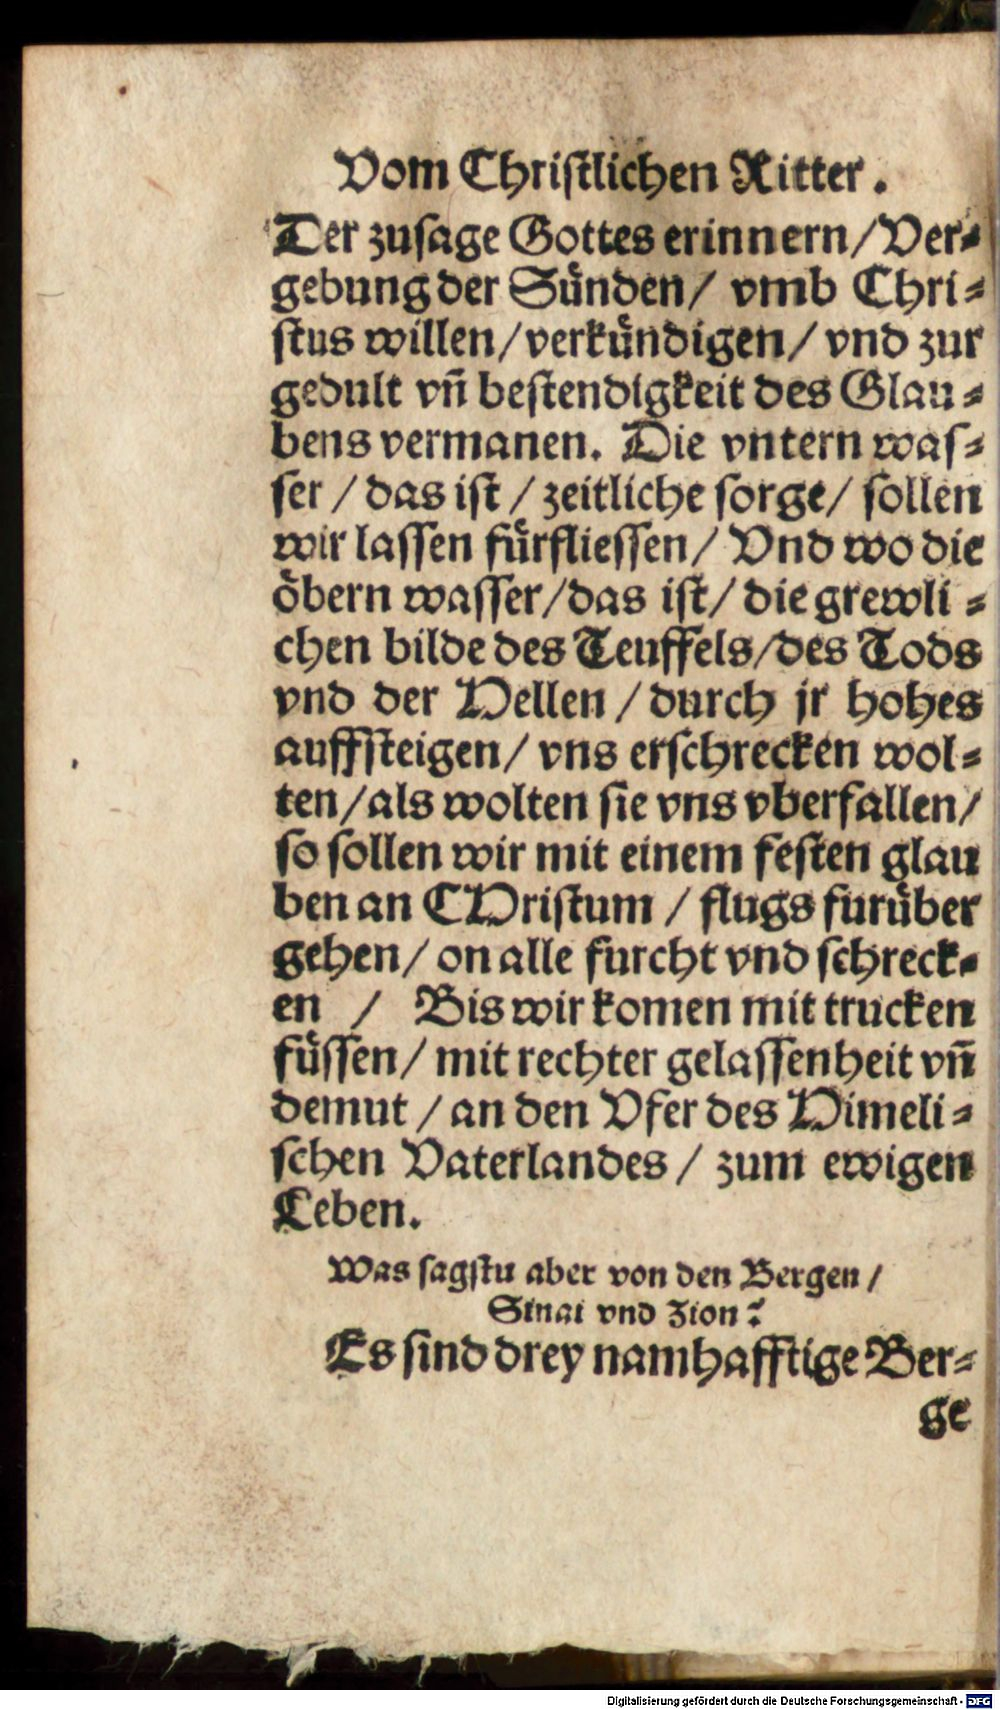 Vom Chriſtlichen Ritter.
Der zuſage Gottes erinnern/Ver⸗
gebung der Suͤnden/ vmb Chri⸗
ſtus willen/verkuͤndigen/ vnd zur
gedult vn̄ beſtendigkeit des Glau⸗
bens vermanen. Die vntern waſ⸗
ſer /das iſt / zeitliche ſorge/ ſollen
wir laſſen fuͤrflieſſen/ Vnd wo die
oͤbern waſſer/das iſt/ die grewli⸗
chen bilde des Teuffels/des Tods
vnd der Hellen /durch jr hohes
auffſteigen/ vns erſchrecken wol⸗
ten/als wolten ſie vns vberfallen/
ſo ſollen wir mit einem feſten glau
ben an CHriſtum / flugs furuͤber
gehen/ on alle furcht vnd ſchreck⸗
en / Bis wir komen mit trucken
fuͤſſen/ mit rechter gelaſſenheit vn̄
demut /an den Vfer des Himeli⸗
ſchen Vaterlandes/ zum ewigen
Leben.
Was ſagſtu aber von den Bergen/
Sinai vnd Zion?
Es ſind drey namhafftige Ber⸗
ge
Digitalisierung gefördert durch die Deutsche Forschungsgemeinschaft - DFG